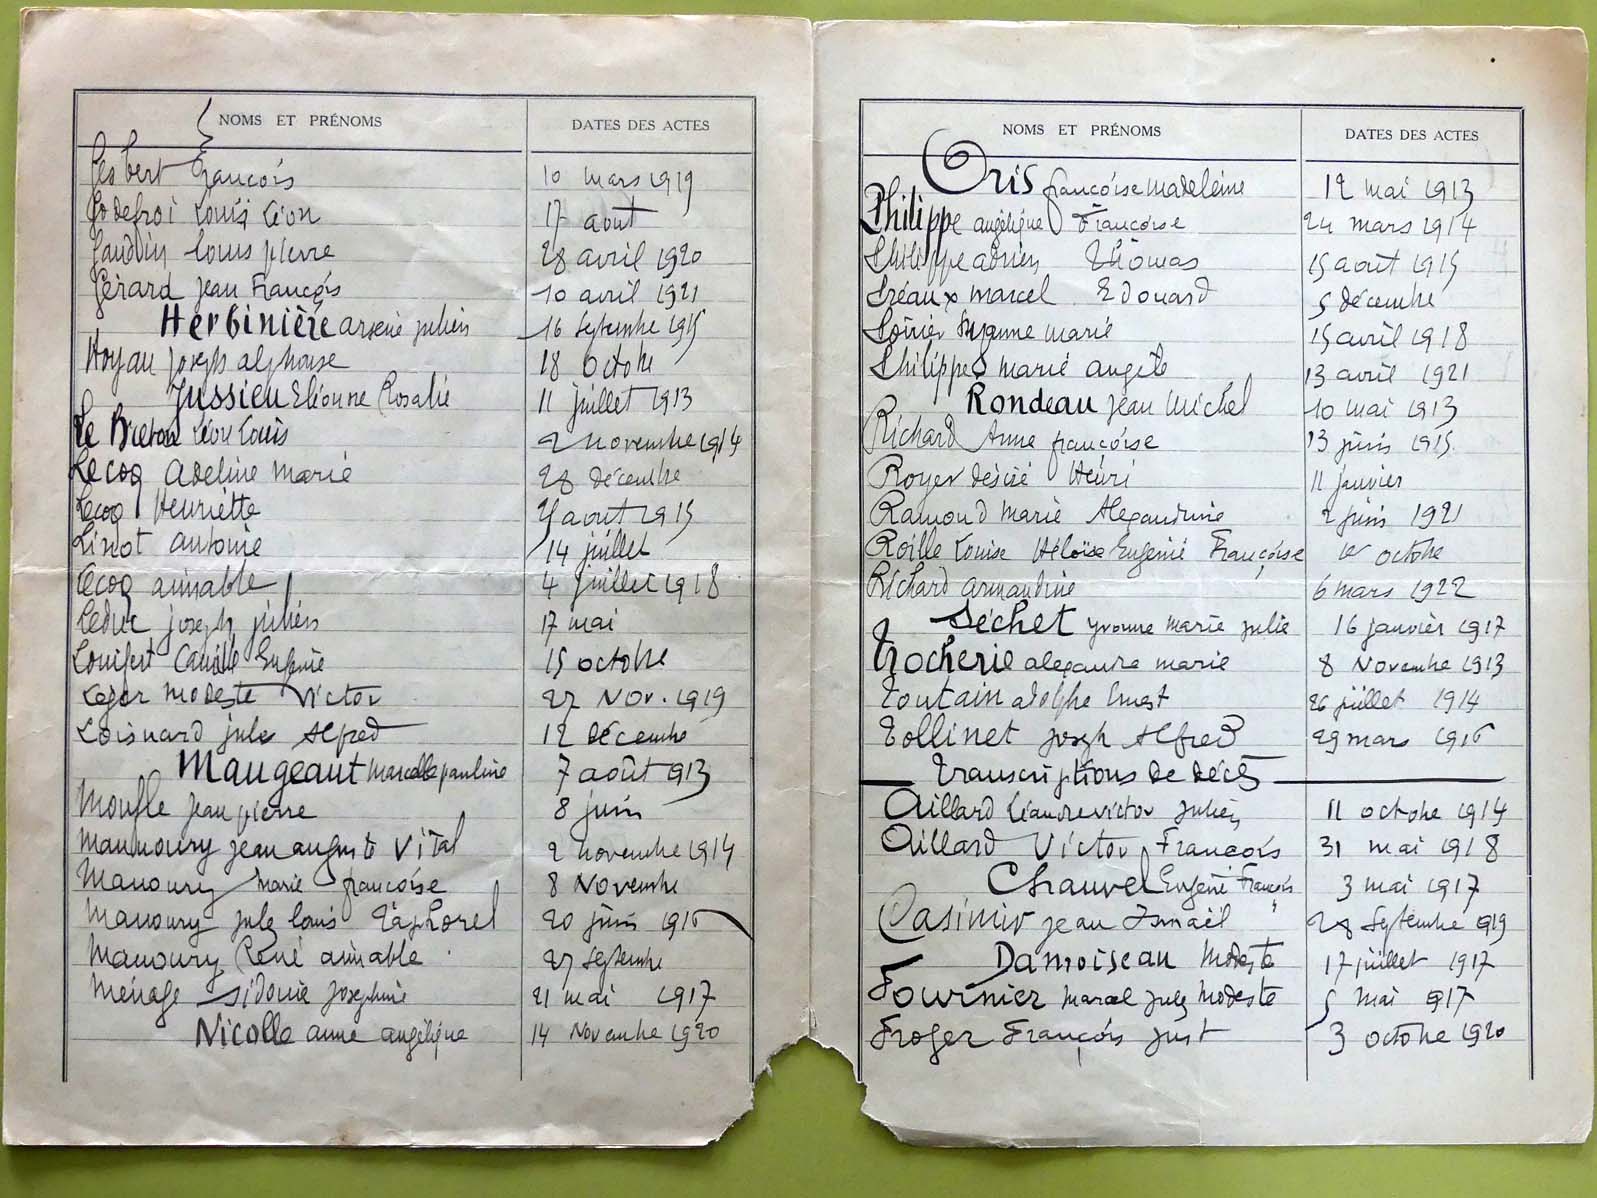 NOMS ET PRÉNOMS DATES DES ACTES
Gesbert François 10 mars 1919
Godefroi Louis Léon 17 août
Gaudin Louis pierre 28 avril 1920
Gérard jean François 10 avril 1921
Herbinière arsène julien 16 septembre 1915
Hoyau joseph alphonse 18 octobre
Jussieu Eléonne Rosalie 11 juillet 1913
Le Breton Léon Louis 2 novembre 1914
Lecoq Adeline marie 28 décembre
Lecoq Henriette août 1915
Linot antoine 14 juillet
Lecoq aimable 4 juillet 1918
Leduc joseph julien 17 mai
Louifert Camille Eugénie 15 octobre
Leger modeste Victor 27 Nov. 1919
Loisnard jules Alfred 12 décembre
Maugeant Marcelle pauline 7 août 1913
Moufle jean pierre 8 juin
Maunoury jean auguste Vital 2 novembre 1914
Manoury Marie françoise 8 Novembre
Manoury jule louis Raphorel 20 juin 1916
Manoury René aimable 27 septembre
Ménage sidonie joséphine 21 mai 1917
Nicolle anne angélique 14 Novembre 1920
NOMS ET PRÉNOMS DATES DES ACTES
Oris françoise madeleine 12 mai 1913
Philippe angélique Françoise 24 mars 1914
Philippe adrien Thomas 15 août 1915
Préaux marcel Edouard 5 décembre
Poirier Suzanne marie 15 avril 1918
Philippe marie angèle 13 avril 1921
Rondeau jean Michel 10 mai 1913
Richard Anne françoise 13 juin 1915
Royer désiré Henri 11 janvier
Ramond Marie Alexandrine 2 juin 1921
Roille Louise Héloïse Eugénie Françoise 1er octobre
Richard armandine 6 mars 1922
Séchet yvonne marie julie 16 janvier 1917
Trocherie alexandre marie 8 Novembre 1913
Toutain adolphe Ernest 26 juillet 1914
Tollinet joseph Alfred 29 mars 1916
Transcriptions de décès
Aillard Léandre victor julien 11 octobre 1914
Aillard Victor François 31 mai 1918
Chauvel Eugène François 3 mai 1917
Casimir jean Ismaël " 28 septembre 1919
Damoiseau Modeste 17 juillet 1917
Fournier Marcel jules Modeste 5 mai 1917
Froger François just 3 octobre 1920